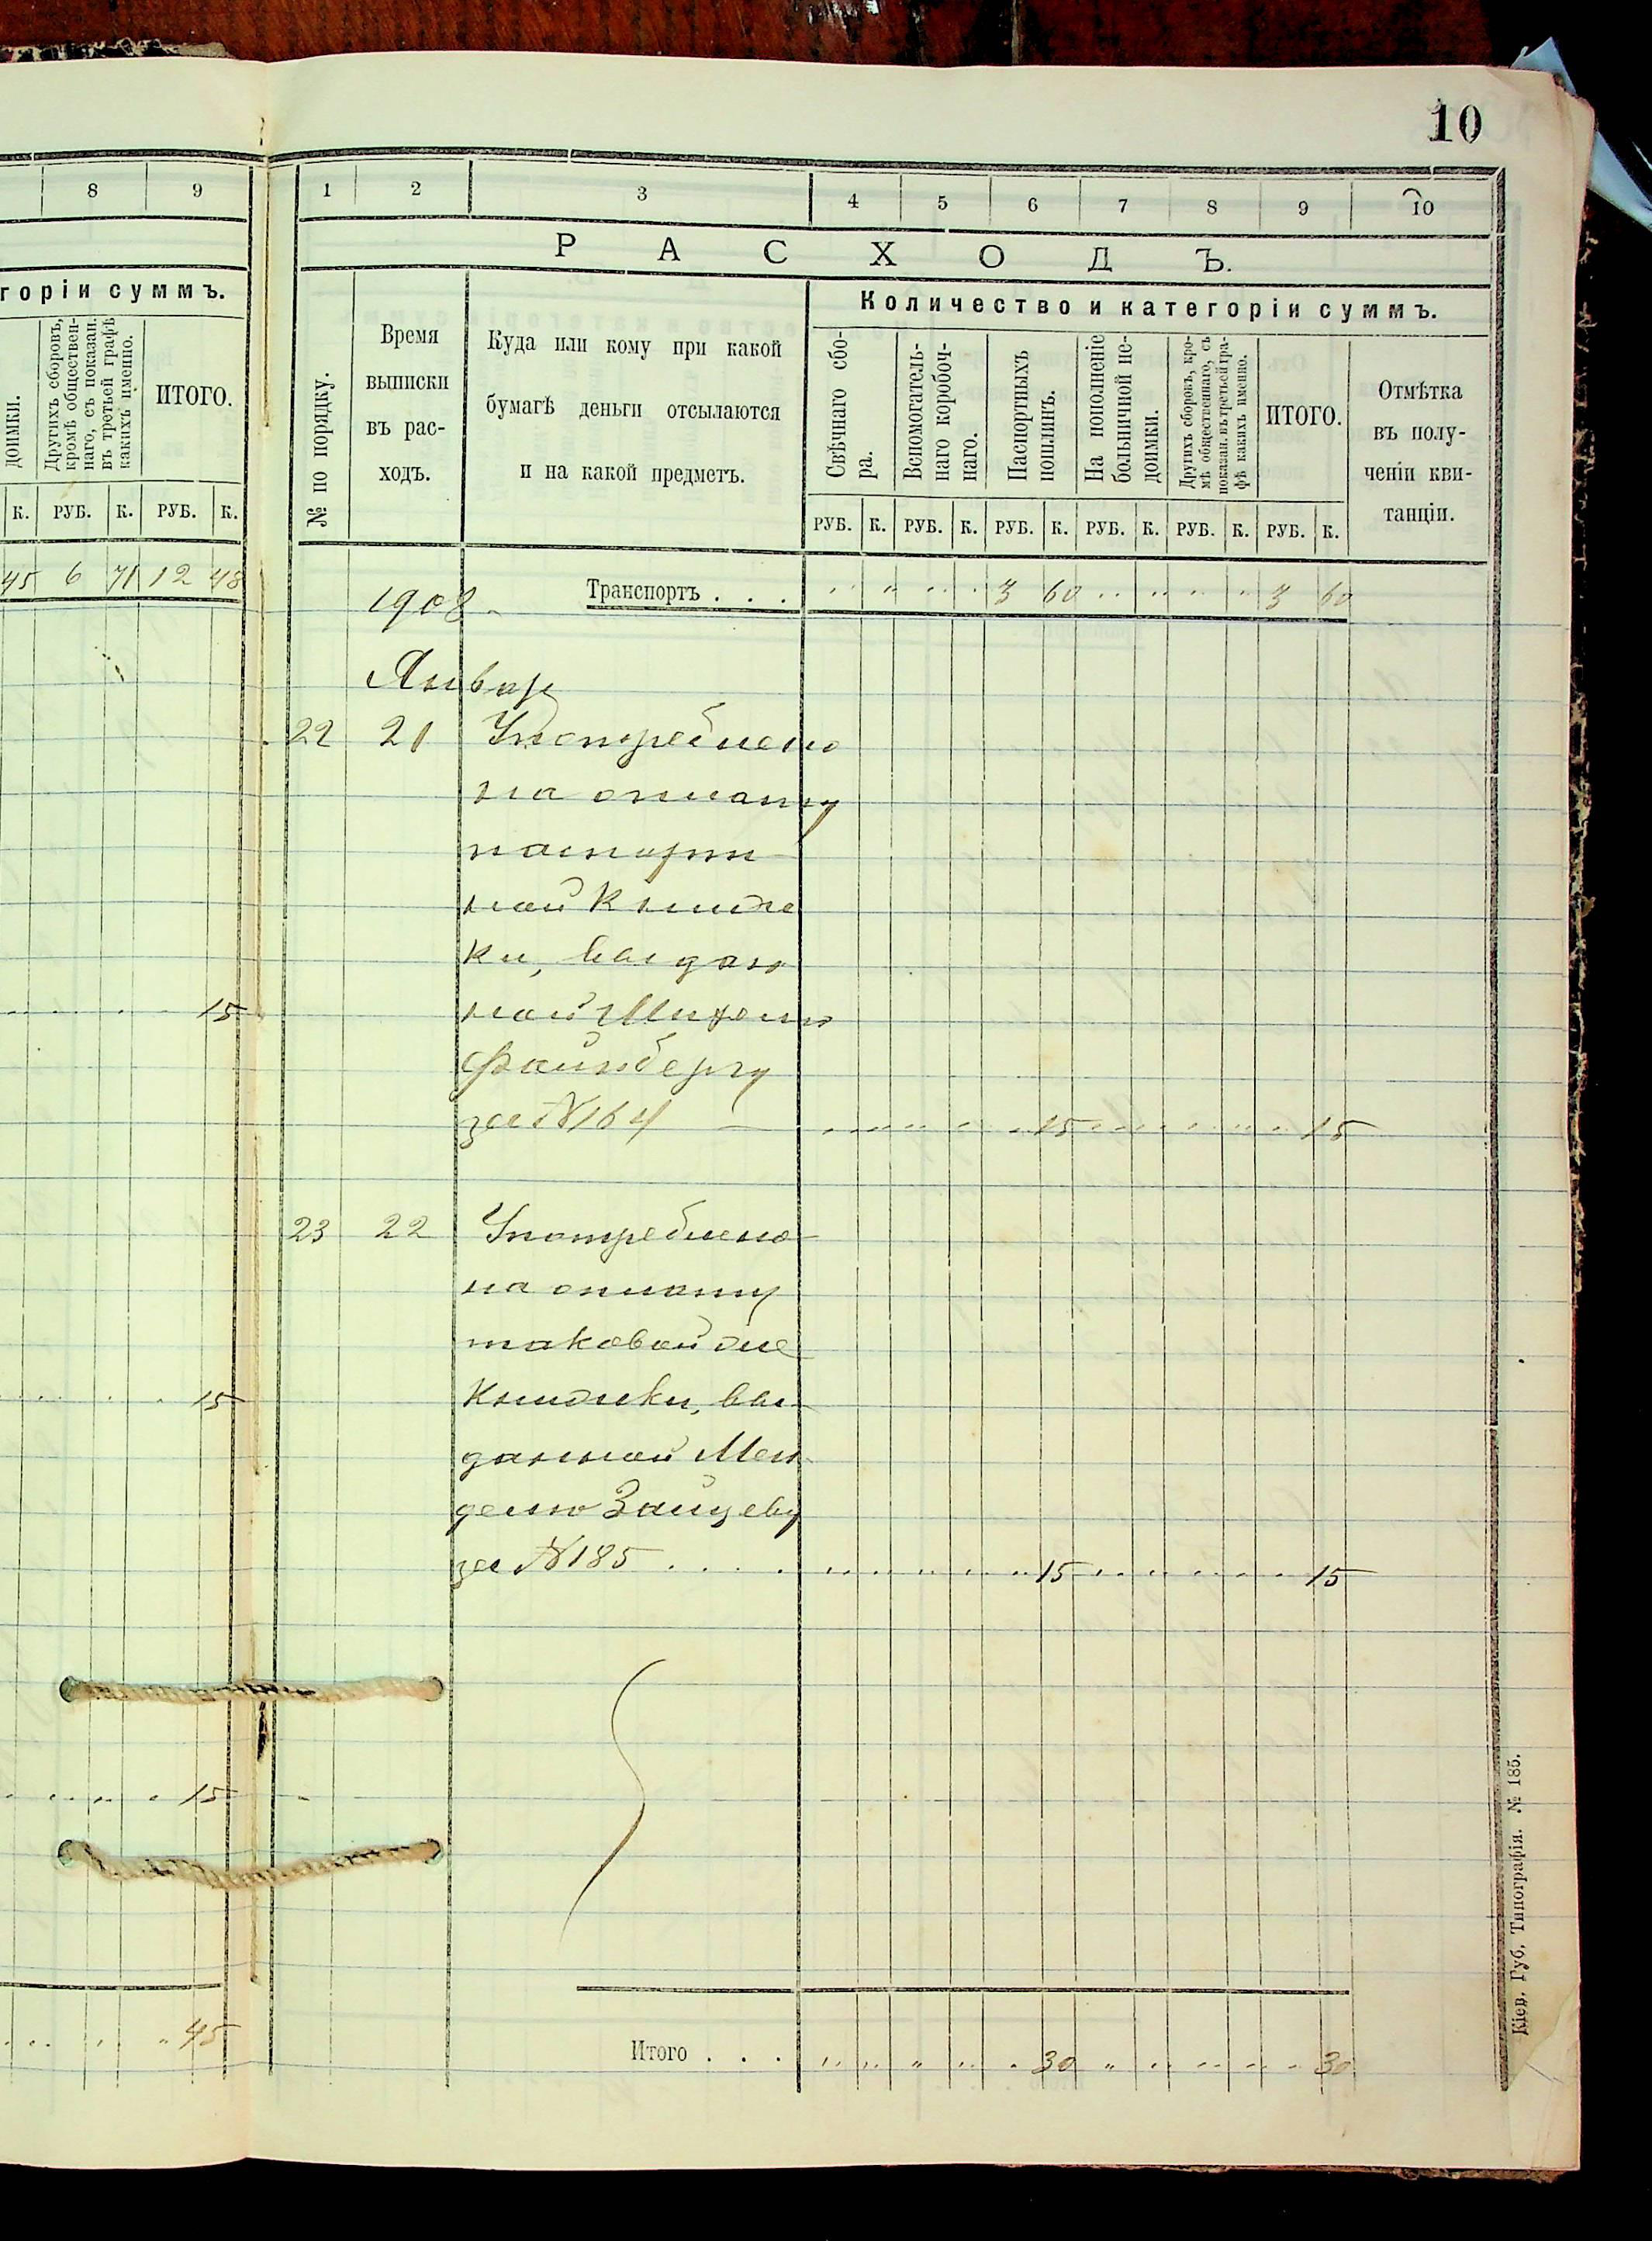 10
8 9
горіи суммъ.
доимки.
Другихъ сборовъ,
кромѣ обществен-
наго, съ показан.
въ третьей графѣ
какихъ именно.
ИТОГО.
К. РУБ. К. РУБ. К.
45 6 71 12 48
15
15
15
45
1 2 3 4 5 6 7 8 9 10
РАСХОДЪ.
№ по порядку.
Время
выписки
въ рас-
ходъ.
Куда или кому при какой
бумагѣ деньги отсылаются
и на какой предметъ.
Количество и категоріи суммъ.
Свѣчнаго сбо-
ра.
Вспомогатель-
наго коробоч-
наго.
Паспортныхъ
пошлинъ.
На пополненіе
больничной не-
доимки.
Другихъ сборовъ, кро-
мѣ общественнаго, съ
показан. въ третьей гра-
фѣ какихъ именно.
ИТОГО.
Отмѣтка
въ полу-
ченіи кви-
танціи.
РУБ. К. РУБ. К. РУБ. К. РУБ. К. РУБ. К. РУБ. К.
1908 Транспортъ . . . 3 60 3 60
Январь
22 21 Употреблено
на оплату
паспорт
ной книж
ки, выдан
ной
Файнбергу
за №164 — 15 15
23 22 Употреблено
на оплату
таковой же
книжки, вы-
данной Мен-
делю Зайцеву
за №185 . . . . 15 15
Итого . . . 30 30
Кіев. Губ. Типографія. № 185.